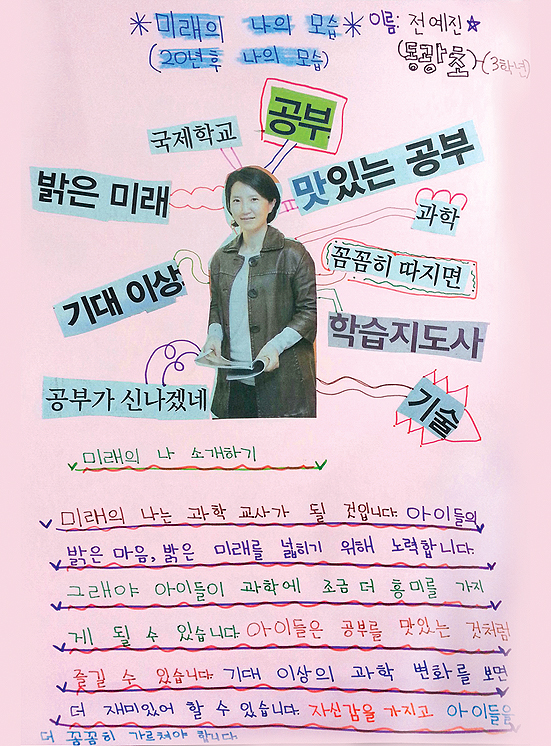 *미래의 나의 모습* 이름: 전예진☆
(20년후 나의 모습) (동광초)-(3학년)
국제학교
공부
밝은 미래
맛있는 공부
과학
꼼꼼히 따지면
기대 이상
학습지도사
공부가 신나겠네
기술
미래의 나 소개하기
미래의 나는 과학 교사가 될 것입니다. 아이들의
밝은 마음, 밝은 미래를 넓히기 위해 노력합니다.
그래야 아이들이 과학에 조금 더 흥미를 가지
게 될 수 있습니다. 아이들은 공부를 맛있는 것처럼
즐길 수 있습니다. 기대 이상의 과학 변화를 보면
더 재미있어 할 수 있습니다. 자신감을 가지고 아이들을
더 꼼꼼히 가르쳐야 합니다.